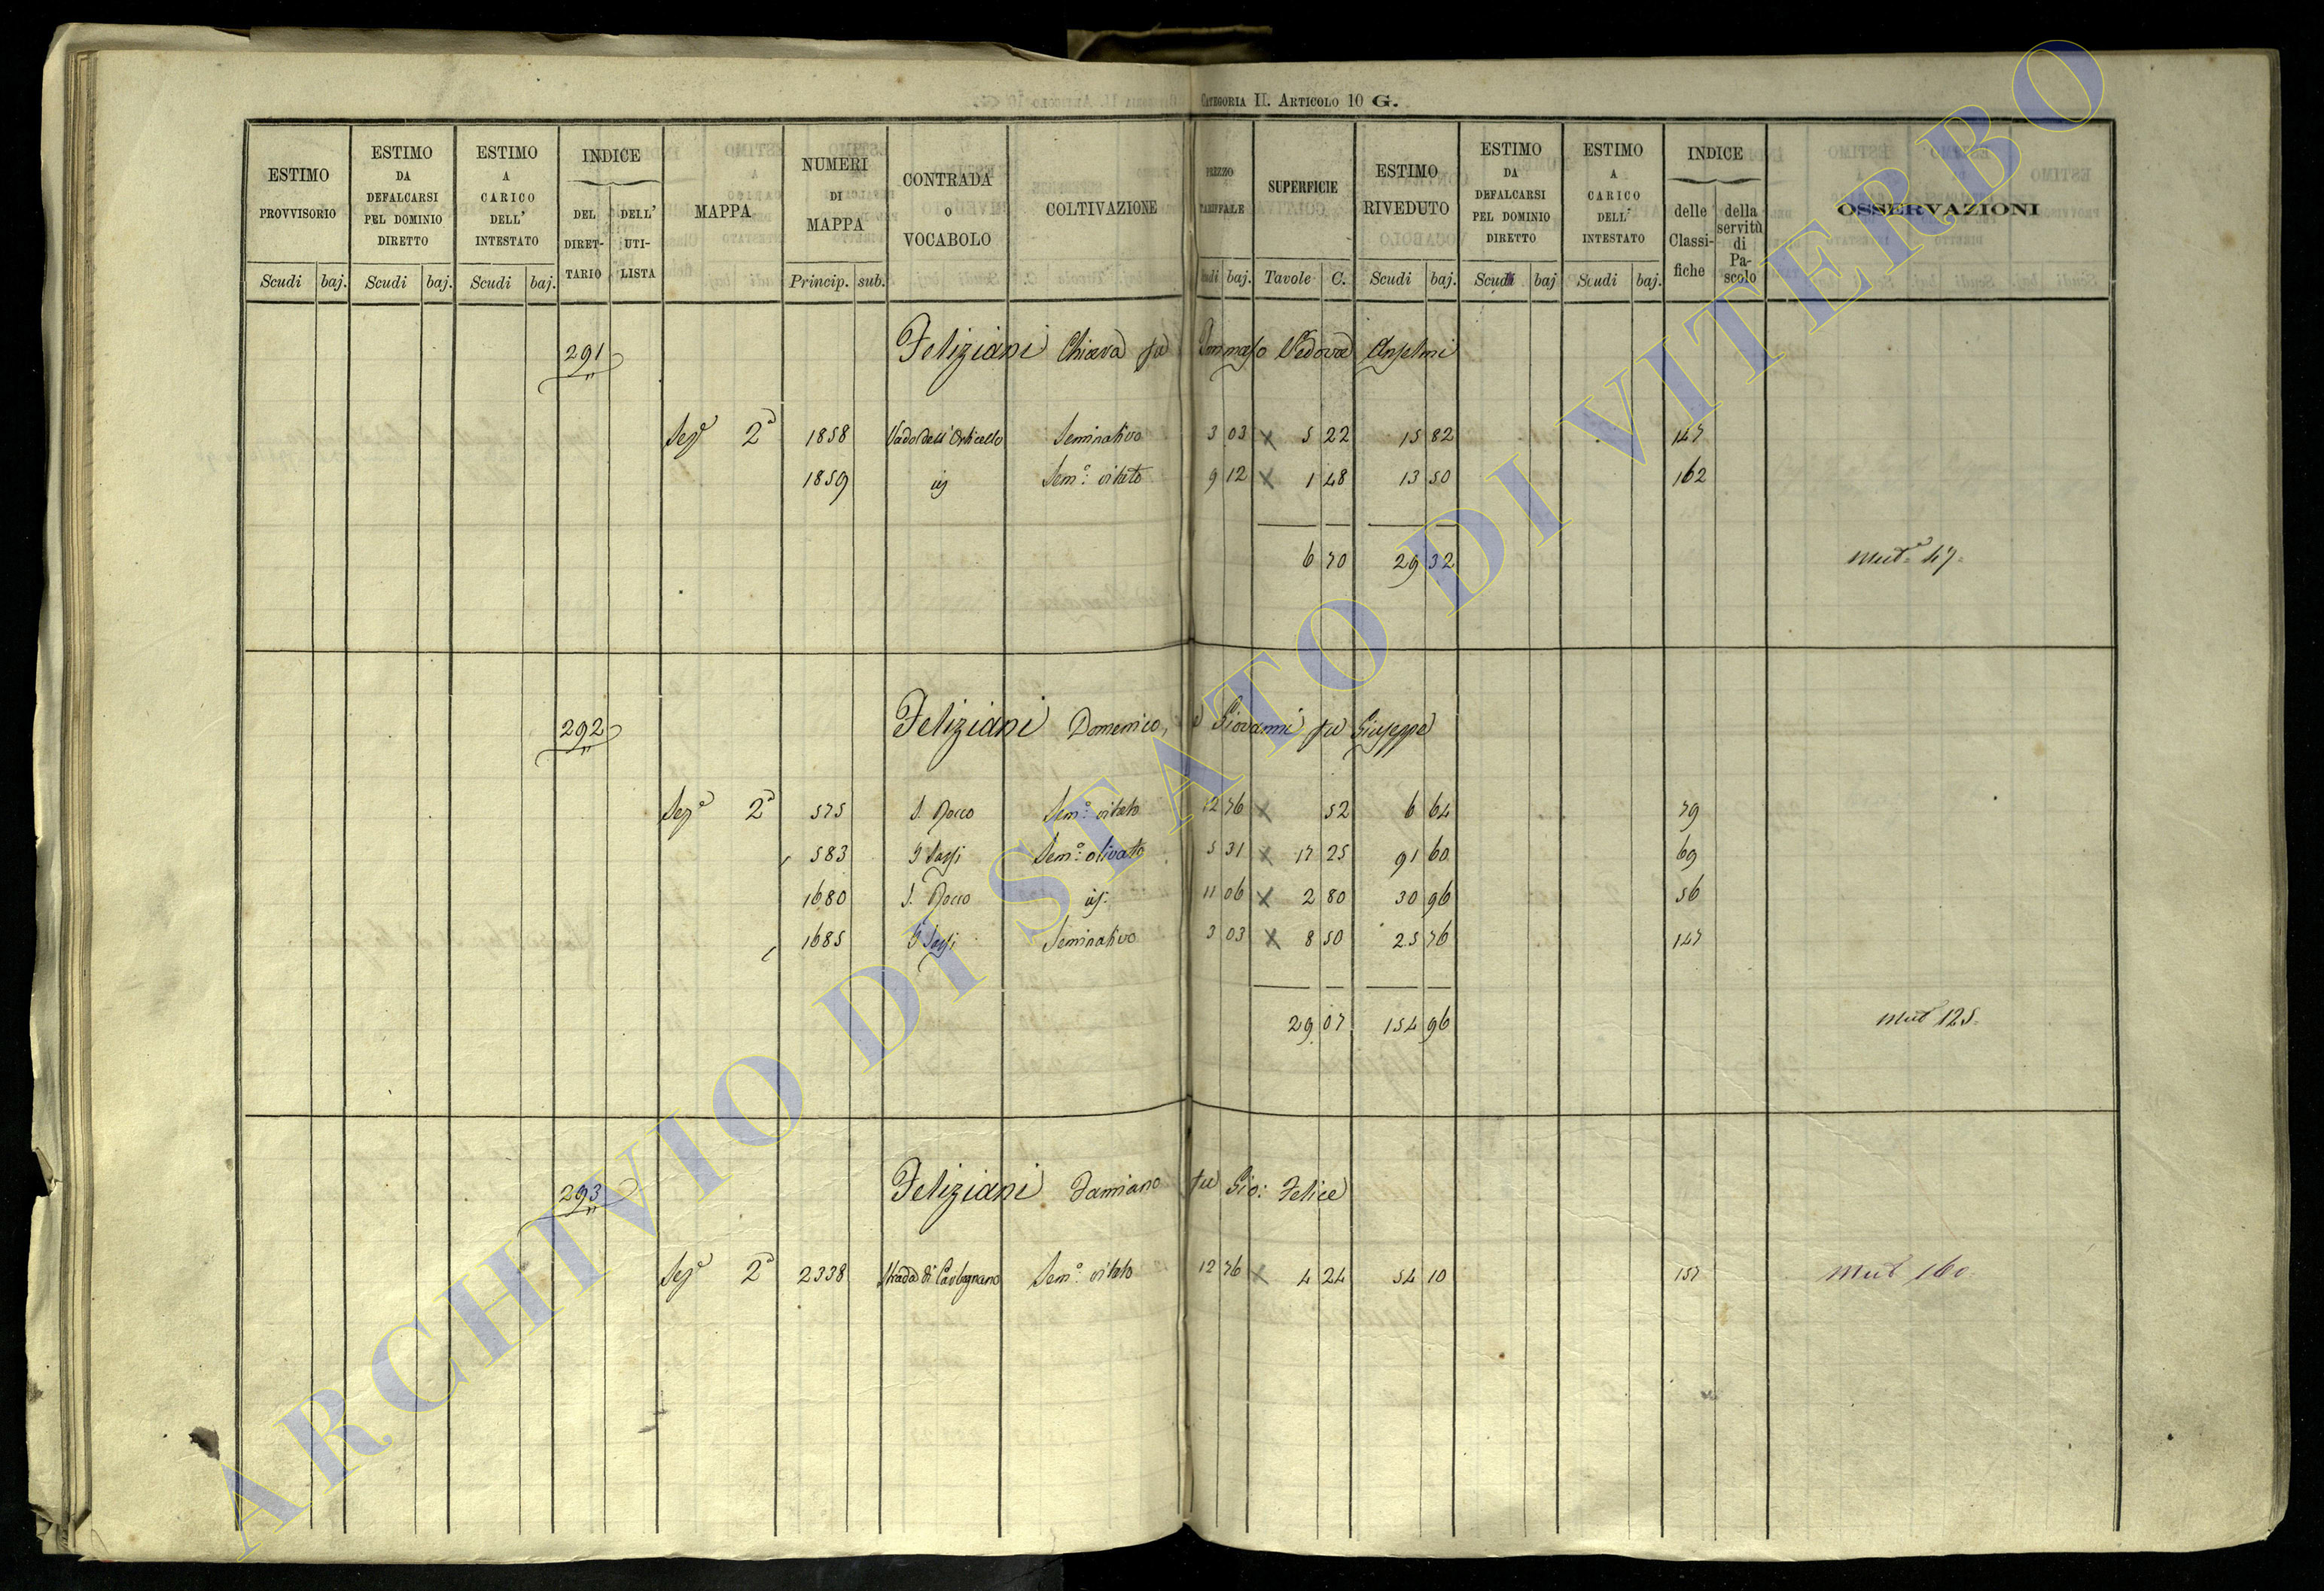 CATEGORIA II. ARTICOLO 10 G.
ESTIMO PROVVISORIO
ESTIMO DA DEFALCARSI PEL DOMINIO DIRETTO
ESTIMO A CARICO DELL' INTESTATO
INDICE
DEL DIRETTARIO
DELL' UTILISTA
MAPPA
NUMERI DI MAPPA
CONTRADA O VOCABOLO
COLTIVAZIONE
PREZZO TARIFFALE
SUPERFICIE
ESTIMO RIVEDUTO
ESTIMO DA DEFALCARSI PEL DOMINIO DIRETTO
ESTIMO A CARICO DELL' INTESTATO
INDICE
delle Classifiche
della servitù di Pascolo
OSSERVAZIONI
Scudi baj. Scudi baj. Scudi baj. Princip. sub. baj. Tavole C. Scudi baj. Scudi baj Scudi baj.
291 Feliziani Chiara fu Tommaso Vedova Anselmi
Sez.e 2a 1858 Vado dell'Orticello Seminativo 3 03 5 22 15 82 147
1859 Sem.o vitato 9 12 1 48 13 50 162
6 70 29 32 Mut.e 47
292 Feliziani Domenico, e Giovanni fu Giuseppe
Sez.e 2a 575 S. Rocco Sem.o vitato 12 76 52 6 64 79
583 I Sassi Sem.o olivato 5 31 17 25 91 60 69
1680 S. Rocco 11 06 2 80 30 96 56
1685 I Sassi Seminativo 3 03 8 50 25 76 147
29 07 154 96 Mut 125
293 Feliziani Damiano fu Gio: Felice
Sez.e 2a 2338 Strada di Carbognano Sem.o vitato 12 76 4 24 54 10 157 Mut 160
ARCHIVIO DI STATO DI VITERBO